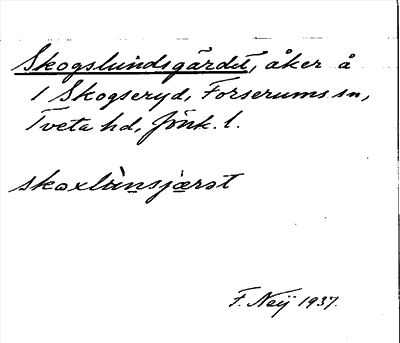 Skogslundsgärdet, åker å
1 Skogseryd, Forserums sn,
Tveta hd, Jönk. l.
skoxlùnsjærət
F. Neij 1937.